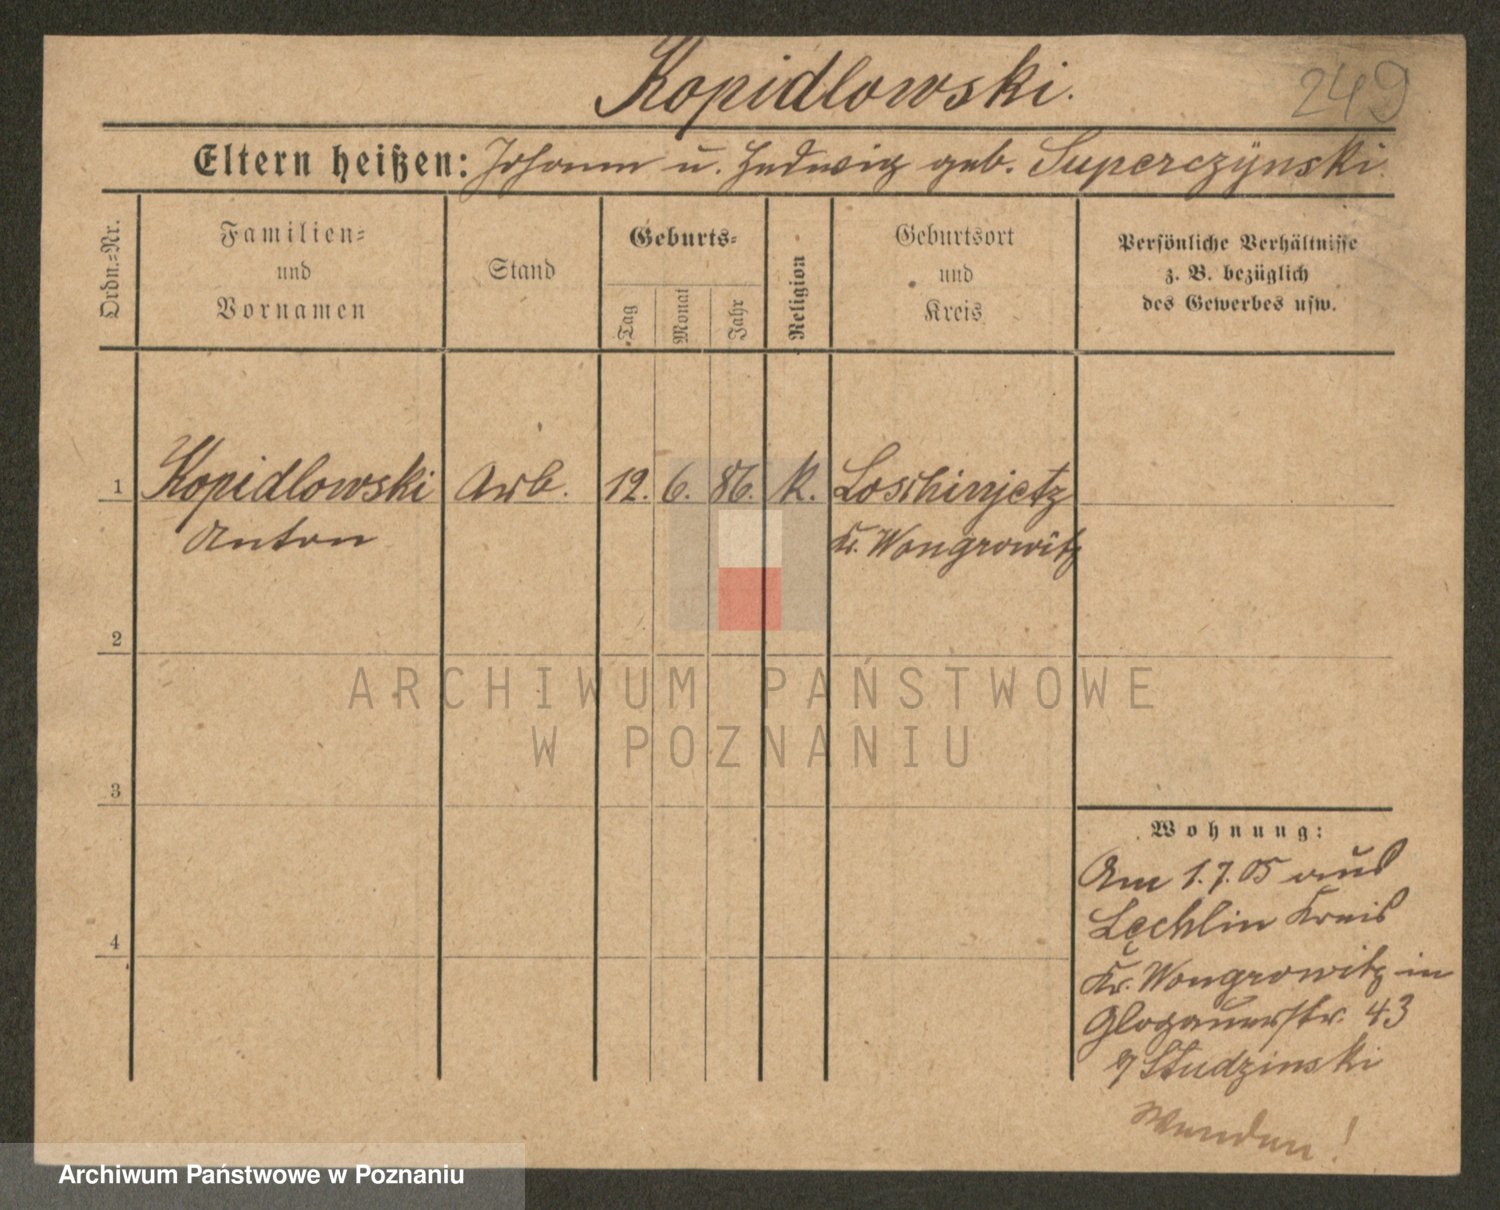 Kopidlowski.
249
Eltern heißen: Johann u. Hedwig geb. Superczÿnski.
Ordn.-Nr.
Familien-
und
Vornamen
Stand
Geburts-
Tag
Monat
Jahr
Religion
Geburtsort
und
Kreis
Persönliche Verhältnisse
z. B. bezüglich
des Gewerbes usw.
1 Kopidlowski Arb. 12. 6. 86. K. Loschinjetz
Anton Kr. Wongrowitz
2
ARCHIWUM PAŃSTWOWE
W POZNANIU
3
Wohnung:
Am 1.7.05 aus
Lechlin Kreis
4
Kr. Wongrowitz in
Glogauerstr. 43
Studzinski
Wenden!
Archiwum Państwowe w Poznaniu